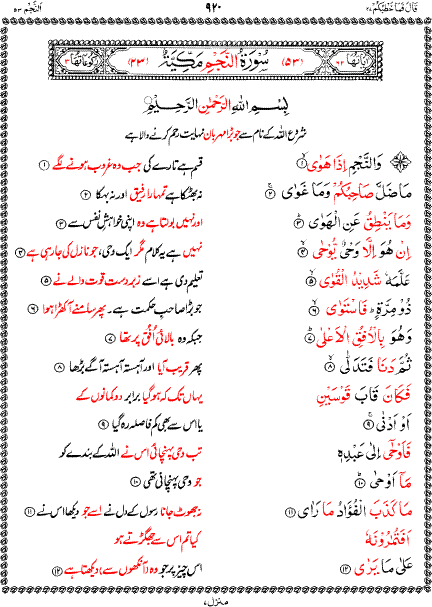 قَالَ فَمَا خَطْبُكُمْ ٢٧ ٩٢٠ اَلنَّجْم ٥٣
اٰیَاتُهَا ٦٢ (٥٣) سُوْرَةُ النَّجْمِ مَكِّیَّةٌ (٢٣) رُكُوْعَاتُهَا ٣
بِسْمِ اللّٰهِ الرَّحْمٰنِ الرَّحِیْمِ
شروع اللہ کے نام سے جو بڑا مہربان نہایت رحم کرنے والا ہے
وَالنَّجْمِ اِذَا هَوٰی ۙ۱ قسم ہے تارے کی جب وہ غروب ہونے لگے ۱
مَا ضَلَّ صَاحِبُكُمْ وَمَا غَوٰی ۚ۲ نہ بھٹکا ہے تمہارا رفیق اور نہ بہکا ۲
وَمَا یَنْطِقُ عَنِ الْهَوٰی ؕ۳ اور نہیں بولتا ہے وہ اپنی خواہش نفس سے ۳
اِنْ هُوَ اِلَّا وَحْیٌ یُّوْحٰی ۙ۴ نہیں ہے یہ کلام مگر ایک وحی، جو نازل کی جا رہی ہے ۴
عَلَّمَهٗ شَدِیْدُ الْقُوٰی ۙ۵ تعلیم دی ہے اسے زبردست قوت والے نے ۵
ذُوْ مِرَّةٍ ؕ فَاسْتَوٰی ۙ۶ جو بڑا صاحبِ حکمت ہے۔ پھر سامنے آ کھڑا ہوا ۶
وَهُوَ بِالْاُفُقِ الْاَعْلٰی ؕ۷ جبکہ وہ بالائی اُفق پر تھا ۷
ثُمَّ دَنَا فَتَدَلّٰی ۙ۸ پھر قریب آیا اور آہستہ آہستہ آگے بڑھا ۸
فَكَانَ قَابَ قَوْسَیْنِ یہاں تک کہ ہو گیا برابر دو کمانوں کے
اَوْ اَدْنٰی ۚ۹ یا اس سے بھی کم فاصلہ رہ گیا ۹
فَاَوْحٰۤی اِلٰی عَبْدِهٖ تب وحی پہنچائی اس نے اللہ کے بندے کو
مَاۤ اَوْحٰی ؕ۱۰ جو وحی پہنچانی تھی ۱۰
مَا كَذَبَ الْفُؤَادُ مَا رَاٰی ۱۱ نہ جھوٹ جانا رسول کے دل نے اسے جو دیکھا اس نے ۱۱
اَفَتُمٰرُوْنَهٗ کیا تم اس سے جھگڑتے ہو
عَلٰی مَا یَرٰی ۱۲ اس چیز پر جو وہ (آنکھوں سے) دیکھتا ہے ۱۲
منزل ۷